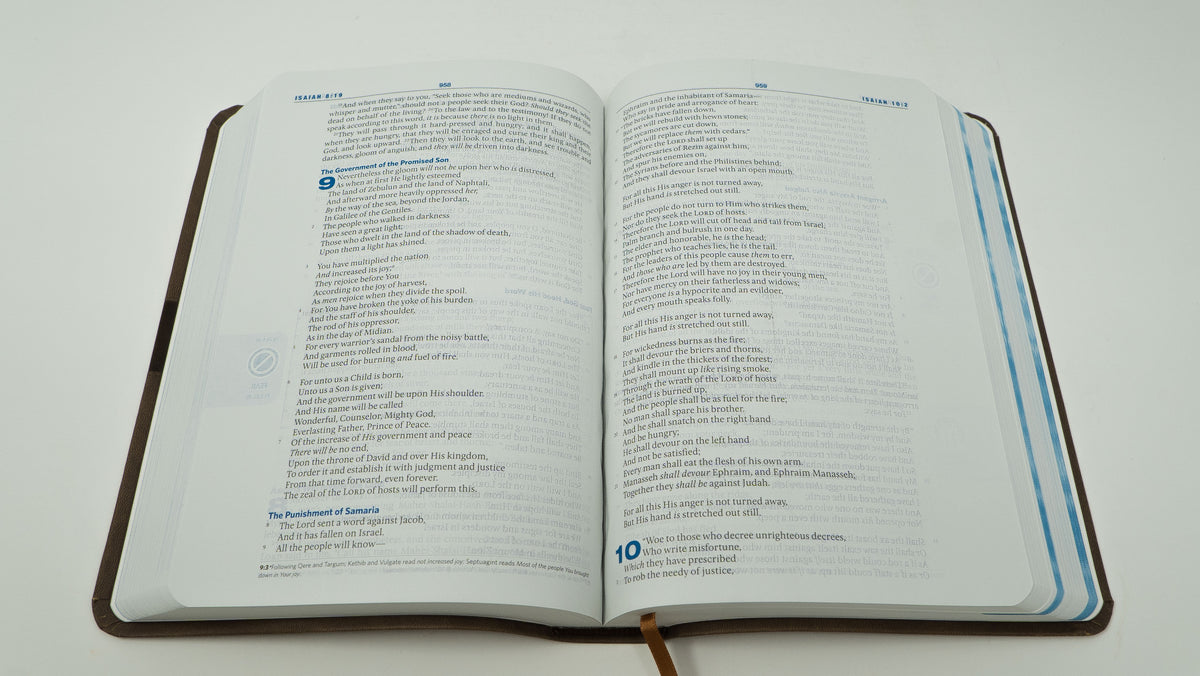 958
ISAIAH 8:19
19And when they say to you, "Seek those who are mediums and wizards, who
whisper and mutter," should not a people seek their God? Should they seek the
dead on behalf of the living? 20To the law and to the testimony! If they do not
speak according to this word, it is because there is no light in them.
21They will pass through it hard-pressed and hungry; and it shall happen,
when they are hungry, that they will be enraged and curse their king and their
God, and look upward. 22Then they will look to the earth, and see trouble and
darkness, gloom of anguish; and they will be driven into darkness.
The Government of the Promised Son
9 Nevertheless the gloom will not be upon her who is distressed,
As when at first He lightly esteemed
The land of Zebulun and the land of Naphtali,
And afterward more heavily oppressed her,
By the way of the sea, beyond the Jordan,
In Galilee of the Gentiles.
2 The people who walked in darkness
Have seen a great light;
Those who dwelt in the land of the shadow of death,
Upon them a light has shined.
3 You have multiplied the nation
And increased its joy;a
They rejoice before You
According to the joy of harvest,
As men rejoice when they divide the spoil.
4 For You have broken the yoke of his burden
And the staff of his shoulder,
The rod of his oppressor,
As in the day of Midian.
5 For every warrior's sandal from the noisy battle,
And garments rolled in blood,
Will be used for burning and fuel of fire.
6 For unto us a Child is born,
Unto us a Son is given;
And the government will be upon His shoulder.
And His name will be called
Wonderful, Counselor, Mighty God,
Everlasting Father, Prince of Peace.
7 Of the increase of His government and peace
There will be no end,
Upon the throne of David and over His kingdom,
To order it and establish it with judgment and justice
From that time forward, even forever.
The zeal of the LORD of hosts will perform this.
The Punishment of Samaria
8 The Lord sent a word against Jacob,
And it has fallen on Israel.
9 All the people will know—
9:3 a Following Qere and Targum; Kethib and Vulgate read not increased joy; Septuagint reads Most of the people You brought
down in Your joy.
959
ISAIAH 10:2
Ephraim and the inhabitant of Samaria—
Who say in pride and arrogance of heart:
10 "The bricks have fallen down,
But we will rebuild with hewn stones;
The sycamores are cut down,
But we will replace them with cedars."
11 Therefore the LORD shall set up
The adversaries of Rezin against him,
And spur his enemies on,
12 The Syrians before and the Philistines behind;
And they shall devour Israel with an open mouth.
For all this His anger is not turned away,
But His hand is stretched out still.
13 For the people do not turn to Him who strikes them,
Nor do they seek the LORD of hosts.
14 Therefore the LORD will cut off head and tail from Israel,
Palm branch and bulrush in one day.
15 The elder and honorable, he is the head;
The prophet who teaches lies, he is the tail.
16 For the leaders of this people cause them to err,
And those who are led by them are destroyed.
17 Therefore the Lord will have no joy in their young men,
Nor have mercy on their fatherless and widows;
For everyone is a hypocrite and an evildoer,
And every mouth speaks folly.
For all this His anger is not turned away,
But His hand is stretched out still.
18 For wickedness burns as the fire;
It shall devour the briers and thorns,
And kindle in the thickets of the forest;
They shall mount up like rising smoke.
19 Through the wrath of the LORD of hosts
The land is burned up,
And the people shall be as fuel for the fire;
No man shall spare his brother.
20 And he shall snatch on the right hand
And be hungry;
He shall devour on the left hand
And not be satisfied;
Every man shall eat the flesh of his own arm.
21 Manasseh shall devour Ephraim, and Ephraim Manasseh;
Together they shall be against Judah.
For all this His anger is not turned away,
But His hand is stretched out still.
10 "Woe to those who decree unrighteous decrees,
Who write misfortune,
Which they have prescribed
2 To rob the needy of justice,